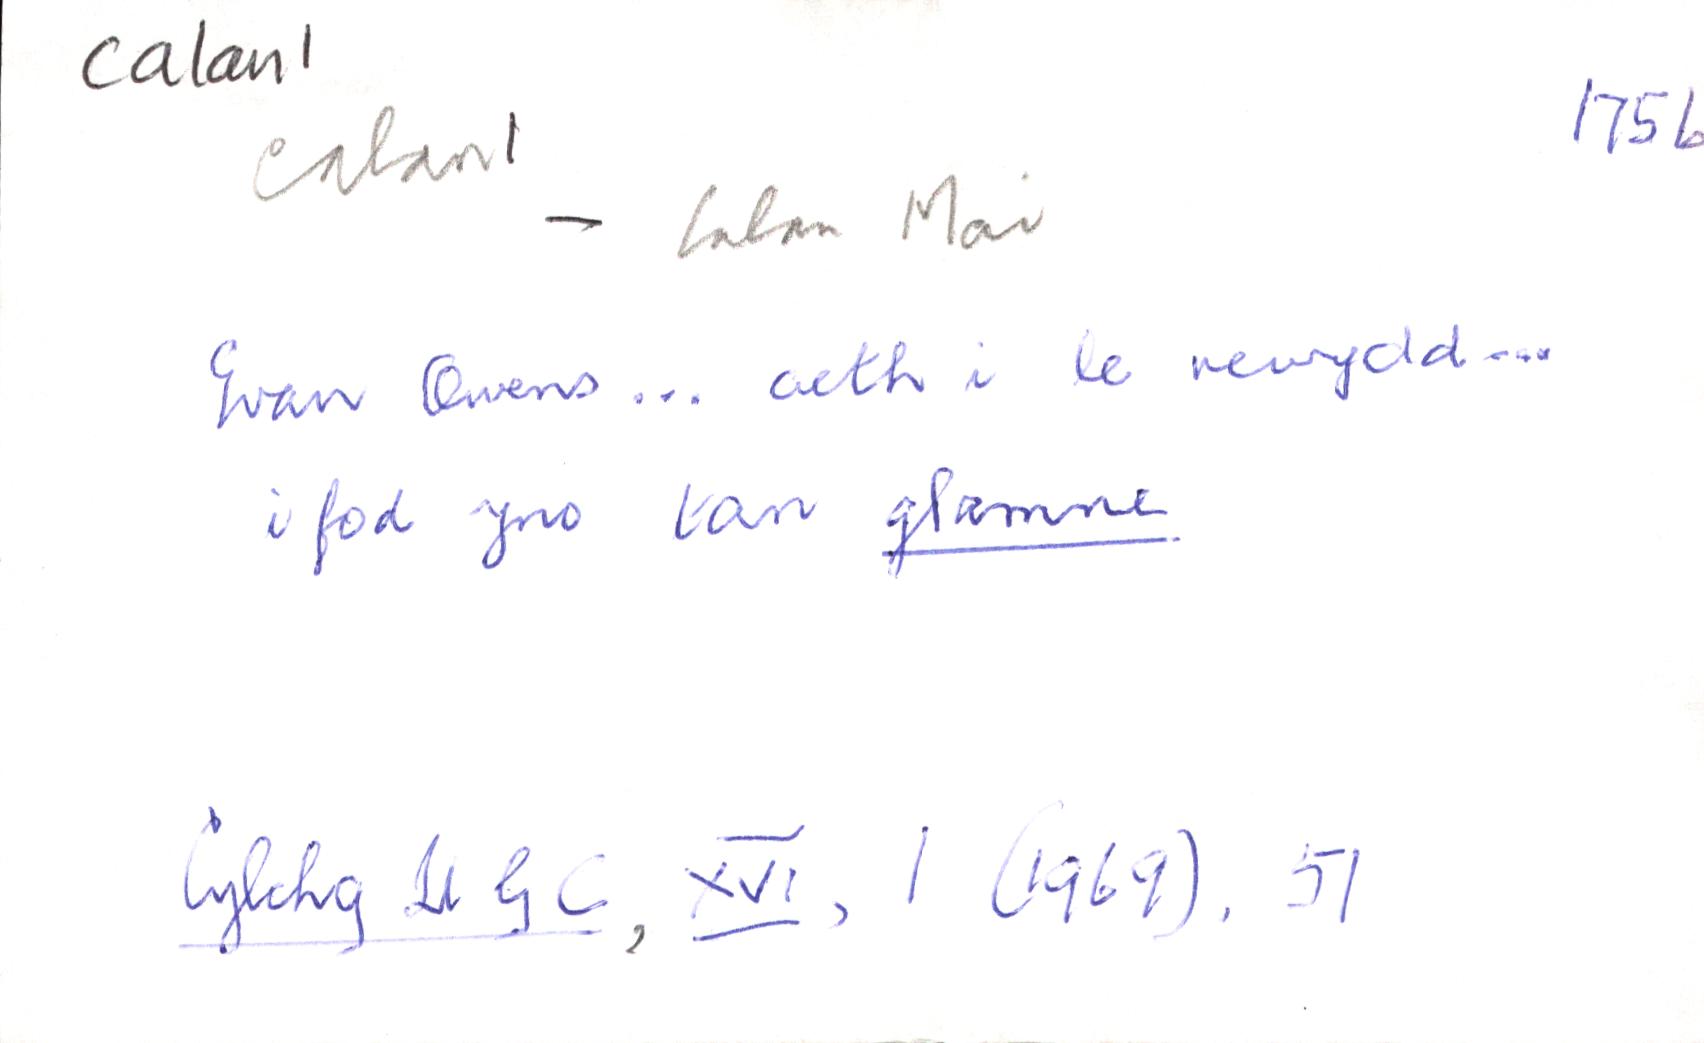 calan¹
1756
calan¹
– Calan Mai
Evan Owens... aeth i le newydd...
i fod yno tan glamme
Cylchg Ll G C, XVI, 1 (1969), 51